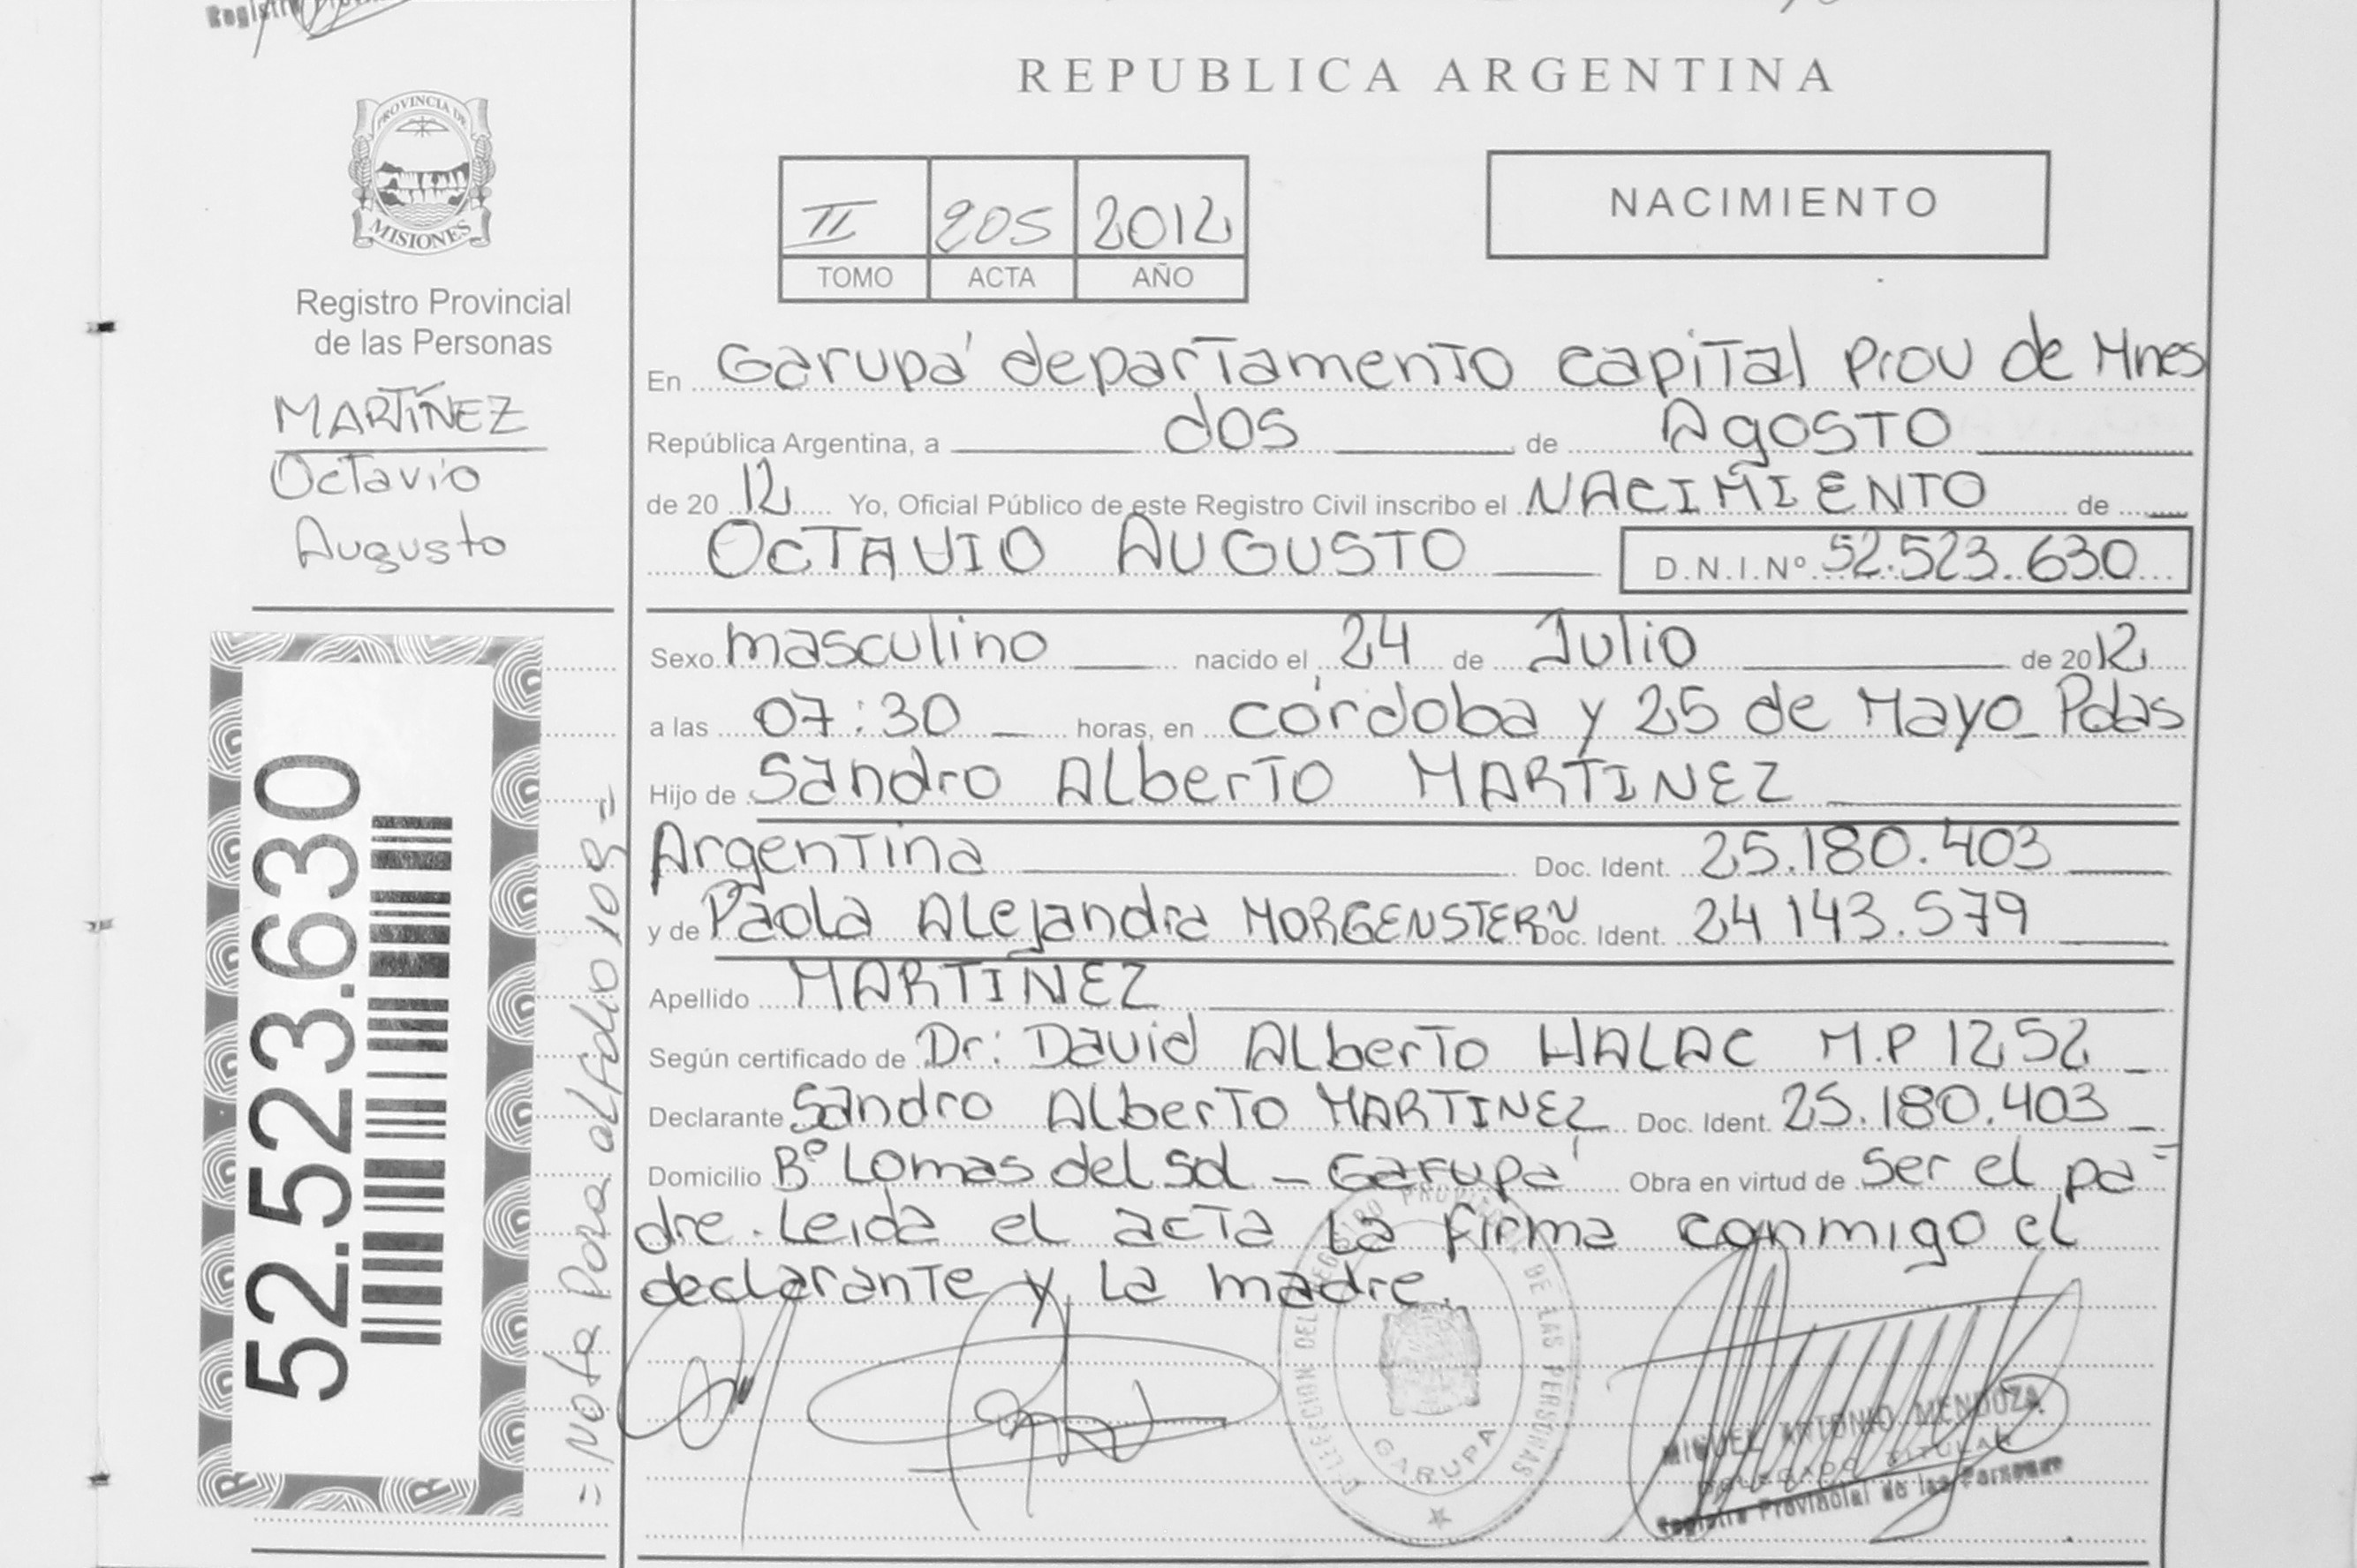 REPUBLICA ARGENTINA
PROVINCIA DE
MISIONES
Registro Provincial
de las Personas
MARTÍNEZ
Octavio
Augusto
II 205 2012
TOMO ACTA AÑO
NACIMIENTO
En Garupá departamento capital Prov de Mnes
República Argentina, a dos de Agosto
de 2012 Yo, Oficial Público de este Registro Civil inscribo el NACIMIENTO de
OCTAVIO AUGUSTO D.N.I.Nº 52.523.630
Sexo masculino nacido el 24 de Julio de 2012
a las 07:30 horas, en córdoba y 25 de Mayo Pdas
Hijo de Sandro Alberto MARTINEZ
Argentina Doc. Ident. 25.180.403
y de Paola Alejandra MORGENSTERN Doc. Ident. 24 143.579
Apellido MARTÍNEZ
Según certificado de Dr: David Alberto HALAC M.P 1252
Declarante Sandro Alberto MARTINEZ Doc. Ident. 25.180.403
Domicilio Bº Lomas del sol - Garupá Obra en virtud de ser el pa=
dre. Leida el acta la firma conmigo el
declarante y la madre.
52.523.630
= Nota Para al folio 109 =
DELEGACION DEL REGISTRO PROVINCIAL DE LAS PERSONAS
GARUPA
MIGUEL ANTONIO MENDOZA
DELEGADO TITULAR
Registro Provincial de las Personas